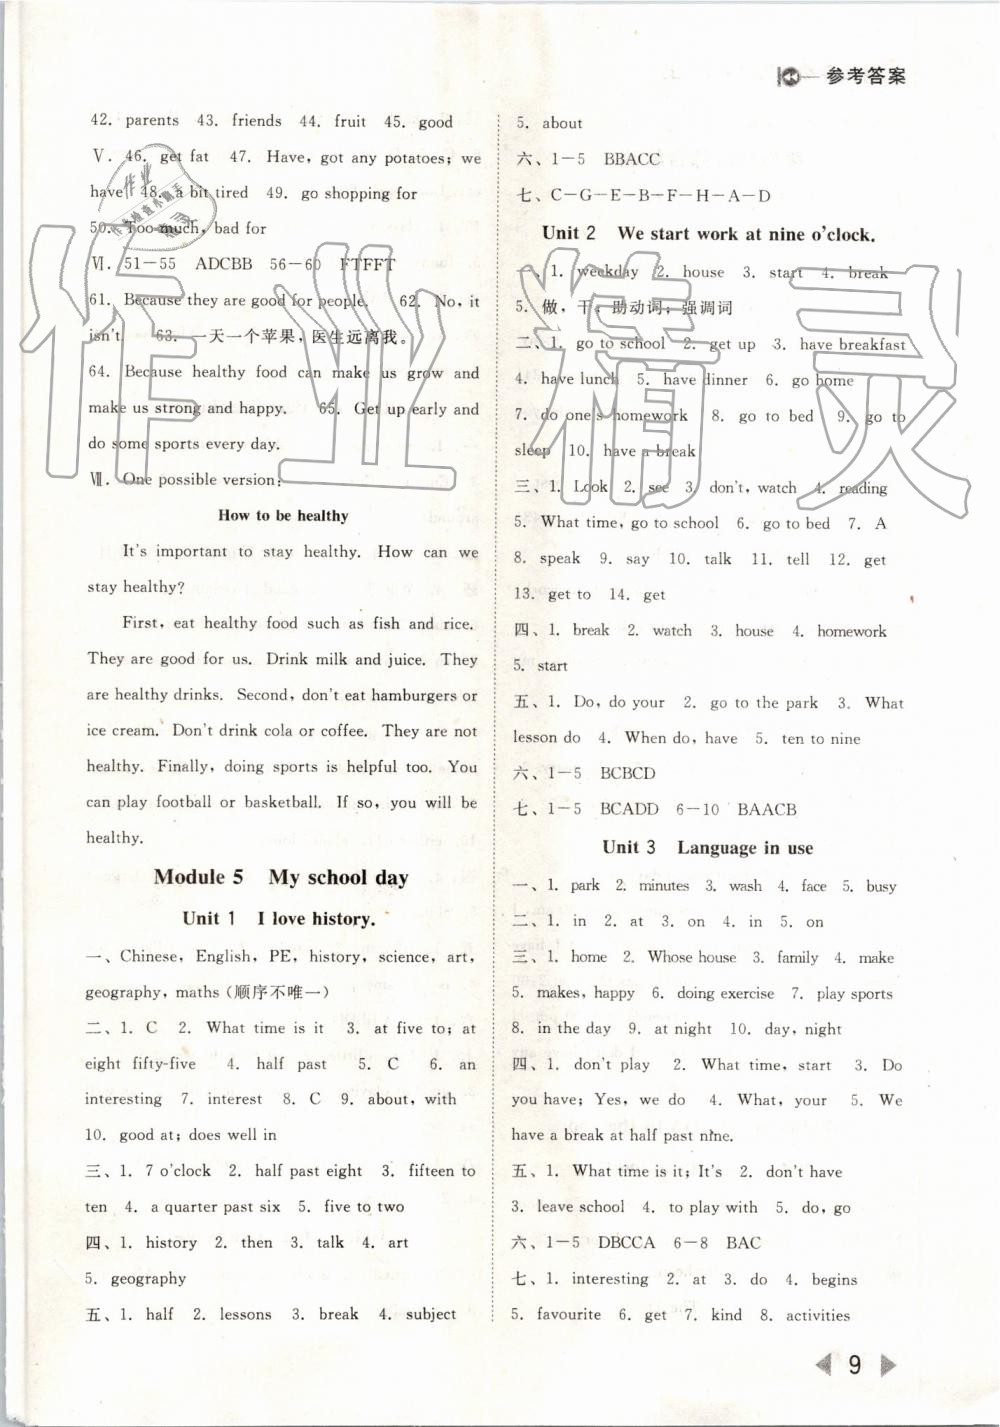 参考答案
42. parents 43. friends 44. fruit 45. good
Ⅴ. 46. get fat 47. Have, got any potatoes; we
have 48. a bit tired 49. go shopping for
50. Too much, bad for
Ⅵ. 51-55 ADCBB 56-60 FTFFT
61. Because they are good for people. 62. No, it
isn't. 63. 一天一个苹果,医生远离我。
64. Because healthy food can make us grow and
make us strong and happy. 65. Get up early and
do some sports every day.
Ⅶ. One possible version:
How to be healthy
It's important to stay healthy. How can we
stay healthy?
First, eat healthy food such as fish and rice.
They are good for us. Drink milk and juice. They
are healthy drinks. Second, don't eat hamburgers or
ice cream. Don't drink cola or coffee. They are not
healthy. Finally, doing sports is helpful too. You
can play football or basketball. If so, you will be
healthy.
Module 5 My school day
Unit 1 I love history.
一、Chinese, English, PE, history, science, art,
geography, maths(顺序不唯一)
二、1. C 2. What time is it 3. at five to; at
eight fifty-five 4. half past 5. C 6. an
interesting 7. interest 8. C 9. about, with
10. good at; does well in
三、1. 7 o'clock 2. half past eight 3. fifteen to
ten 4. a quarter past six 5. five to two
四、1. history 2. then 3. talk 4. art
5. geography
五、1. half 2. lessons 3. break 4. subject
5. about
六、1-5 BBACC
七、C-G-E-B-F-H-A-D
Unit 2 We start work at nine o'clock.
一、1. weekday 2. house 3. start 4. break
5. 做,干;助动词;强调词
二、1. go to school 2. get up 3. have breakfast
4. have lunch 5. have dinner 6. go home
7. do one's homework 8. go to bed 9. go to
sleep 10. have a break
三、1. Look 2. see 3. don't, watch 4. reading
5. What time, go to school 6. go to bed 7. A
8. speak 9. say 10. talk 11. tell 12. get
13. get to 14. get
四、1. break 2. watch 3. house 4. homework
5. start
五、1. Do, do your 2. go to the park 3. What
lesson do 4. When do, have 5. ten to nine
六、1-5 BCBCD
七、1-5 BCADD 6-10 BAACB
Unit 3 Language in use
一、1. park 2. minutes 3. wash 4. face 5. busy
二、1. in 2. at 3. on 4. in 5. on
三、1. home 2. Whose house 3. family 4. make
5. makes, happy 6. doing exercise 7. play sports
8. in the day 9. at night 10. day, night
四、1. don't play 2. What time, start 3. Do
you have; Yes, we do 4. What, your 5. We
have a break at half past nine.
五、1. What time is it; It's 2. don't have
3. leave school 4. to play with 5. do, go
六、1-5 DBCCA 6-8 BAC
七、1. interesting 2. at 3. do 4. begins
5. favourite 6. get 7. kind 8. activities
9
作业精灵